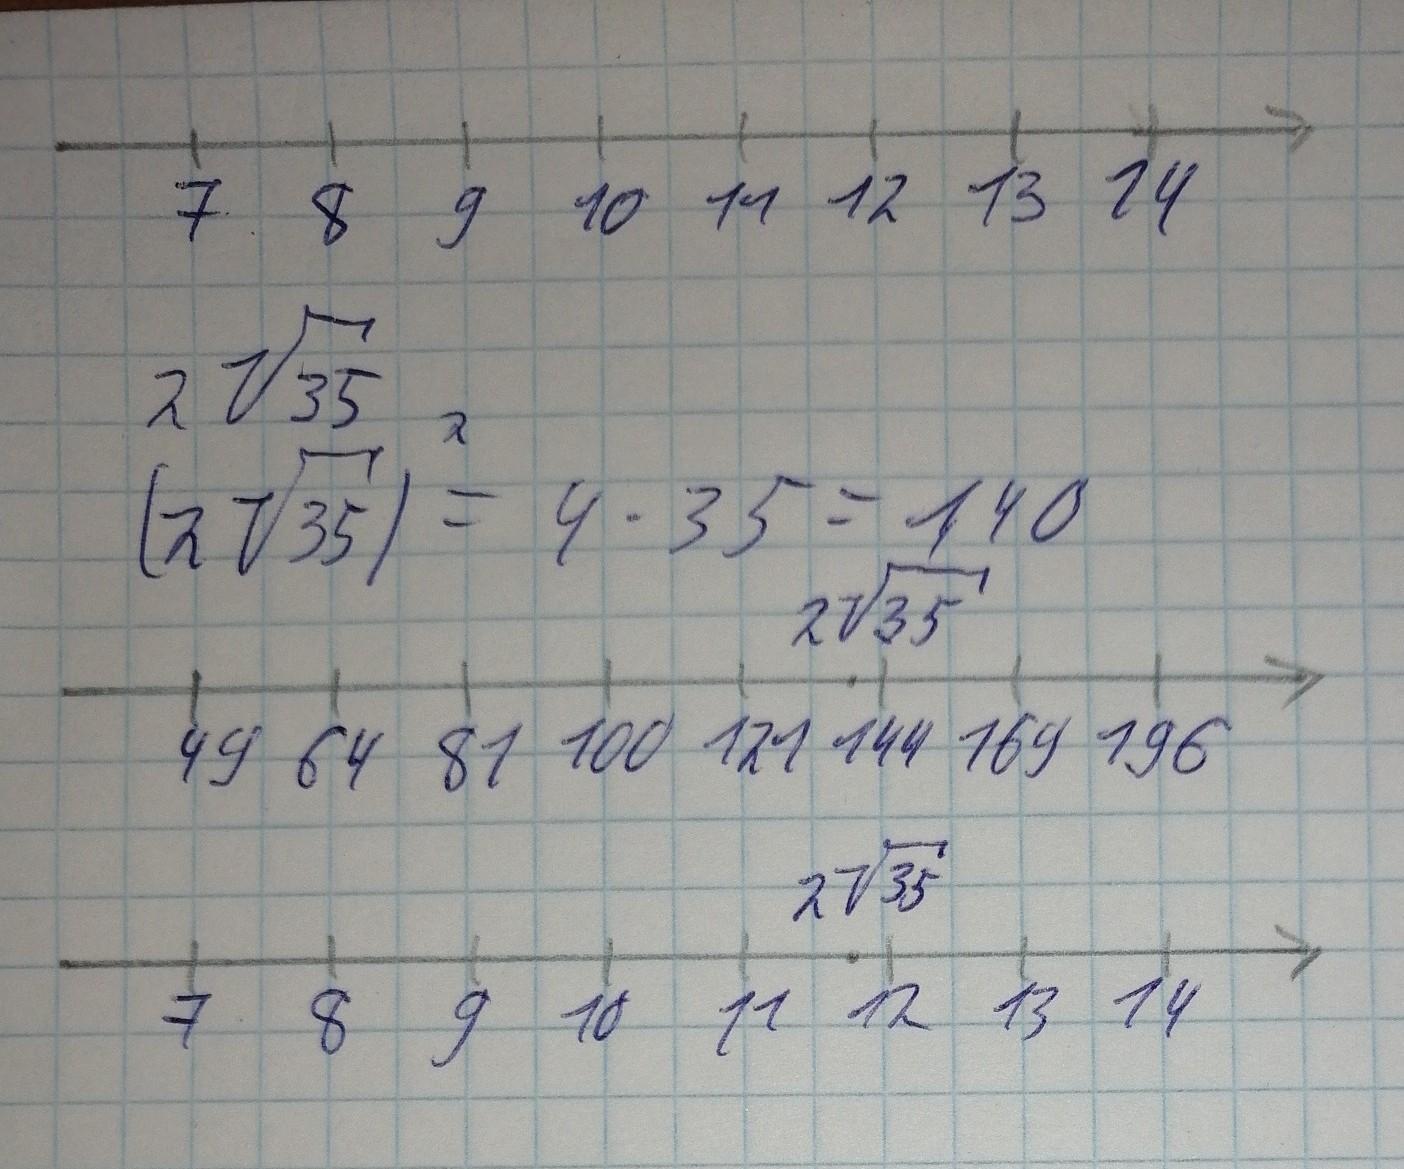 7 8 9 10 11 12 13 14
2√35
(2√35)² = 4 · 35 = 140
2√35
49 64 81 100 121 144 169 196
2√35
7 8 9 10 11 12 13 14